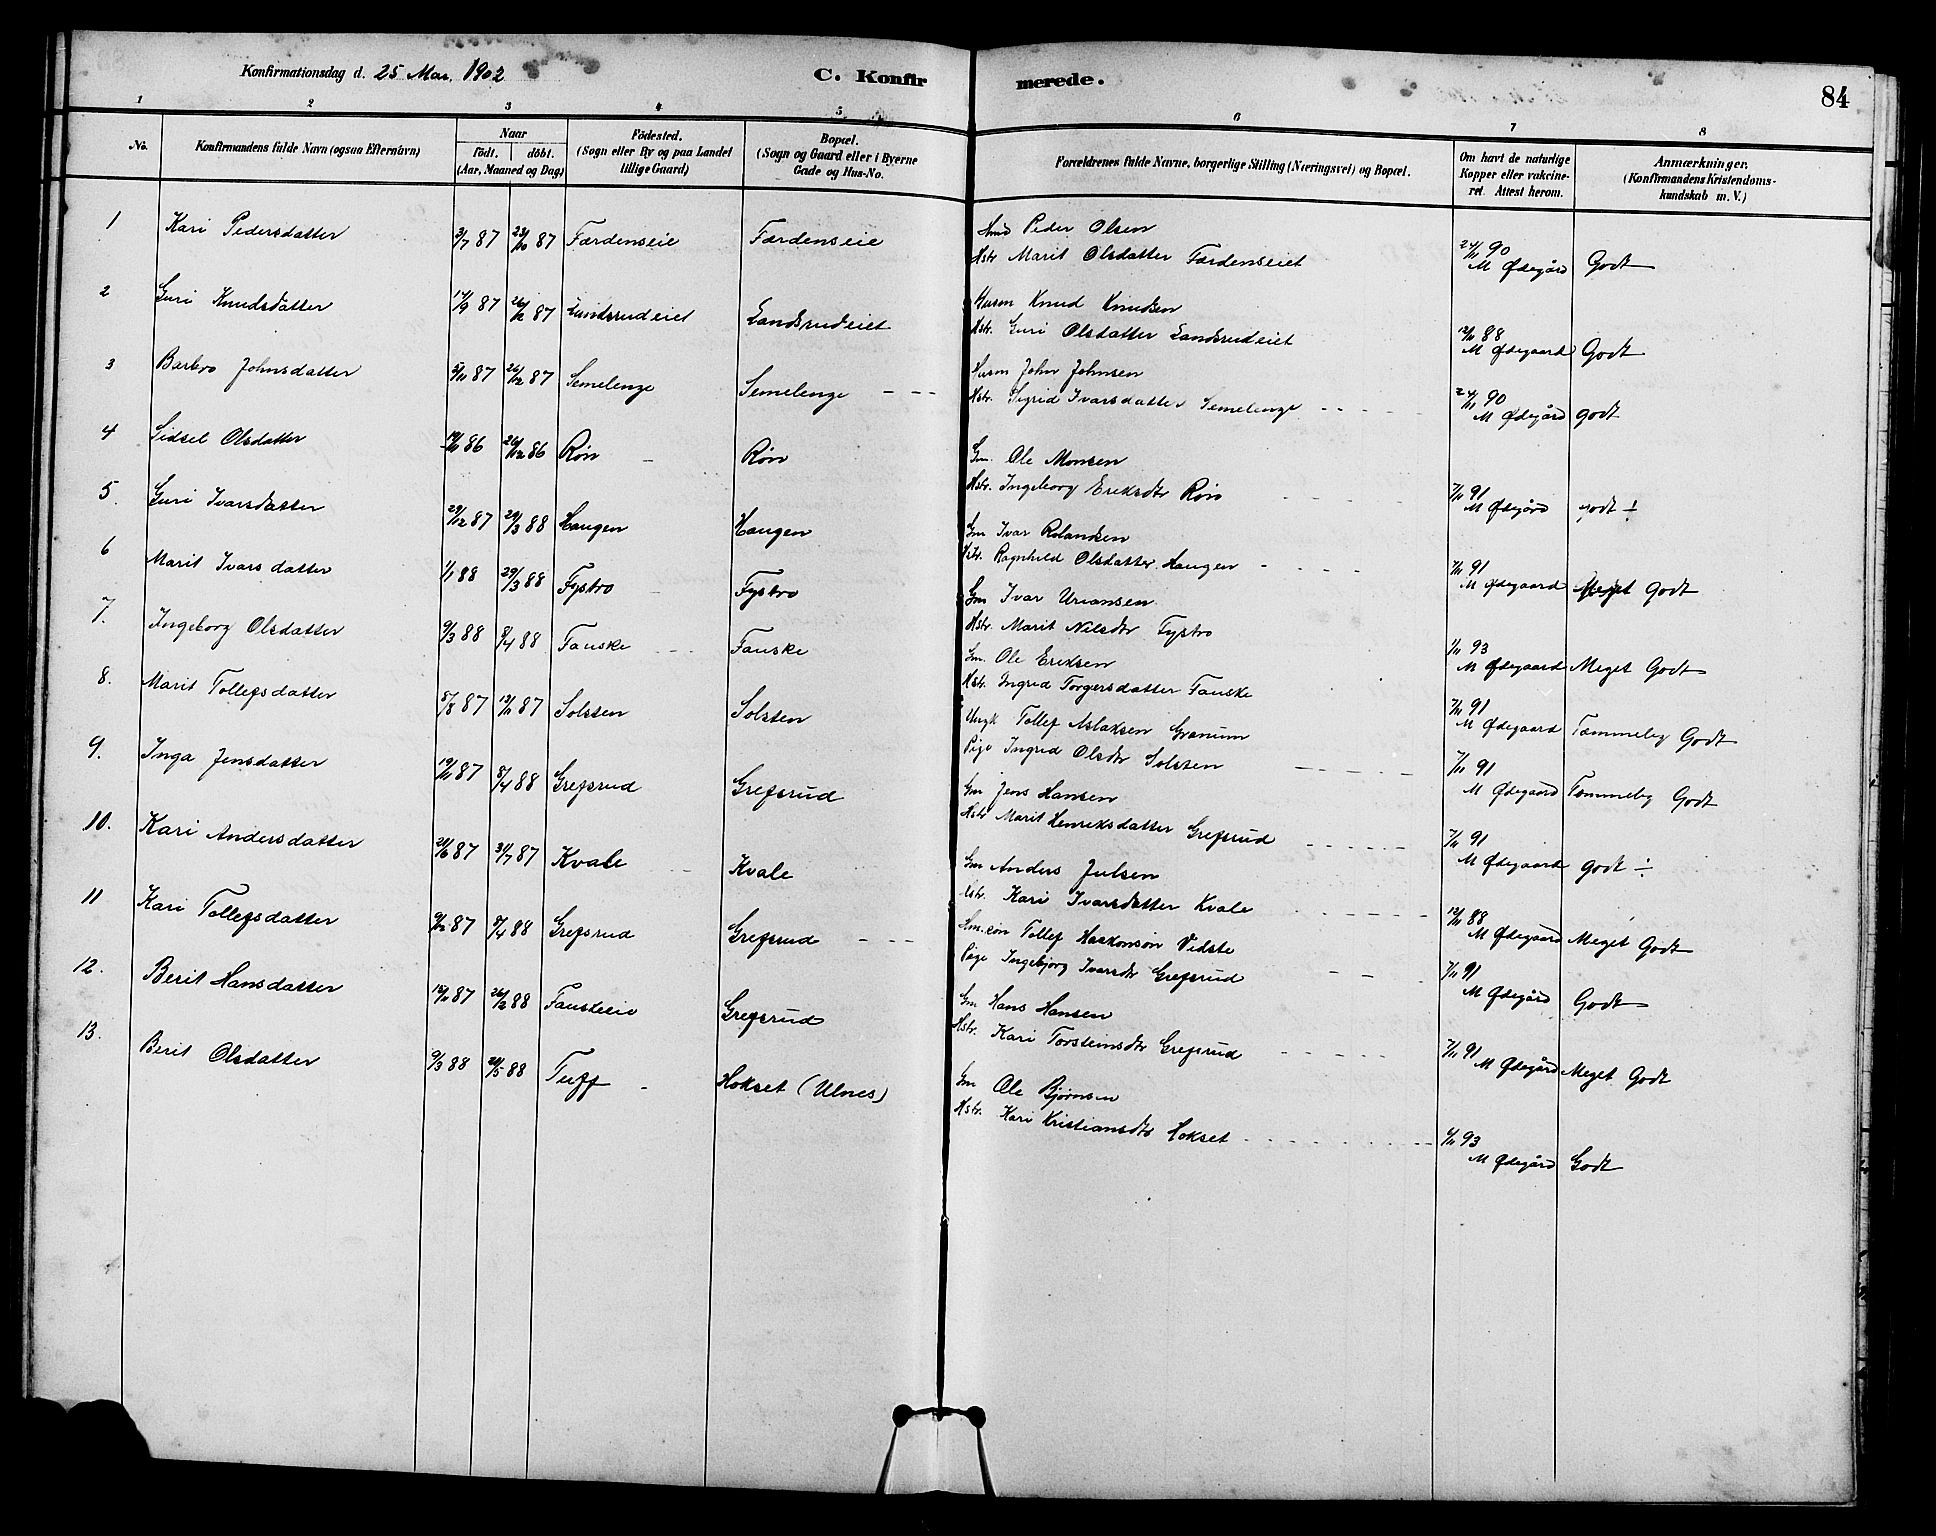 Konfirmationsdag d. 25 Mai 1902 C. Konfirmerede. 84
1 2 3 4 5 6 7 8
No. Konfirmandens fulde Navn (ogsaa Efternavn) Naar født. døbt. (Aar, Maaned og Dag) Fødested. (Sogn eller By og paa Landet tillige Gaard) Bopæl. (Sogn og Gaard eller i Byerne Gade og Hus-No. Forældrenes fulde Navne, borgerlige Stilling (Næringsvei) og Bopæl. Om havt de naturlige Kopper eller vakcineret. Attest herom. Anmærkninger. (Konfirmandens Kristendomskundskab m. V.)
1 Kari Pedersdatter 3/7 87 23/10 87 Færdenseie Færdenseie Peder Olsen
Hstr Marit Olsdatter Færdenseiet 24/11 90 M Ødegård Godt
2 Guri Knudsdatter 17/9 87 26/12 87 Landsrudeiet Landsrudeiet Husm Knud Knudsen
Hstr. Guri Olsdatter Landsrudeiet 12/11 88 M Ødegaard Godt
3 Barbro Johnsdatter 5/11 87 26/12 87 Semelenge Semelenge Husm John Johnsen
Hstr. Sigrid Ivarsdatter Semelenge 24/11 90 M Ødegård godt
4 Sidsel Olsdatter 86 26/12 86 Røn Røn Gm. Ole Monsen
Hstr. Ingeborg Eriksdtr Røn 7/11 91 M Ødegård godt ÷
5. Guri Ivarsdatter 29/12 87 29/3 88 Haugen Haugen Gm Ivar Rolandsen
Hstr. Ragnhild Olsdatter Haugen 7/11 91 M Ødegaard Meget Godt
6 Marit Ivarsdatter 1/1 88 29/3 88 Fystro Fystro Gm Ivar Uriansen
Hstr. Marit Nilsdtr Fystro 1/11 93 M Ødegaard Meget Godt
7. Ingeborg Olsdatter 9/3 88 8/4 88 Fauske Fauske Gm. Ole Eriksen
Hstr. Ingrid Torgersdatter Fauske 7/11 91 M Ødegaard Tæmmelig Godt
8. Marit Tollefsdatter 8/8 87 13/11 87 Solsten Solsten Ungk Tollef Aslaksen Granum
Pige Ingrid Olsdtr Solsten 7/11 91 M Ødegaard Tæmmelig Godt
9. Inga Jensdatter 19/11 87 8/4 88 Grefsrud Grefsrud Gm Jens Hansen
Hstr Marit Henriksdatter Grefsrud 7/11 91 M Ødegaard godt ÷
10. Kari Andersdatter 21/6 87 31/7 87 Kvale Kvale Gm Anders Julsen
Hstr. Kari Ivarsdatter Kvale 12/11 88 M Ødegaard Meget Godt
11 Kari Tollefsdatter 87 8/4 88 Grefsrud Grefsrud Hm.søn Tollef Haakonsøn Vidste
Pige Ingebjørg Ivarsdtr Grefsrud 7/11 91 M Ødegård Godt
12. Berit Hansdatter 87 26/2 88 Grefsrud Gm Hans Hansen
Hstr. Kari Torsteinsdtr Grefsrud 7/11 91 M Ødegård Meget Godt
13. Berit Olsdatter 9/3 88 20/5 88 Tuff Hokset (Ulnes) Gm Ole Bjørnsen
Hstr. Kari Kristiansdtr Hokset 93 M Ødegård Godt